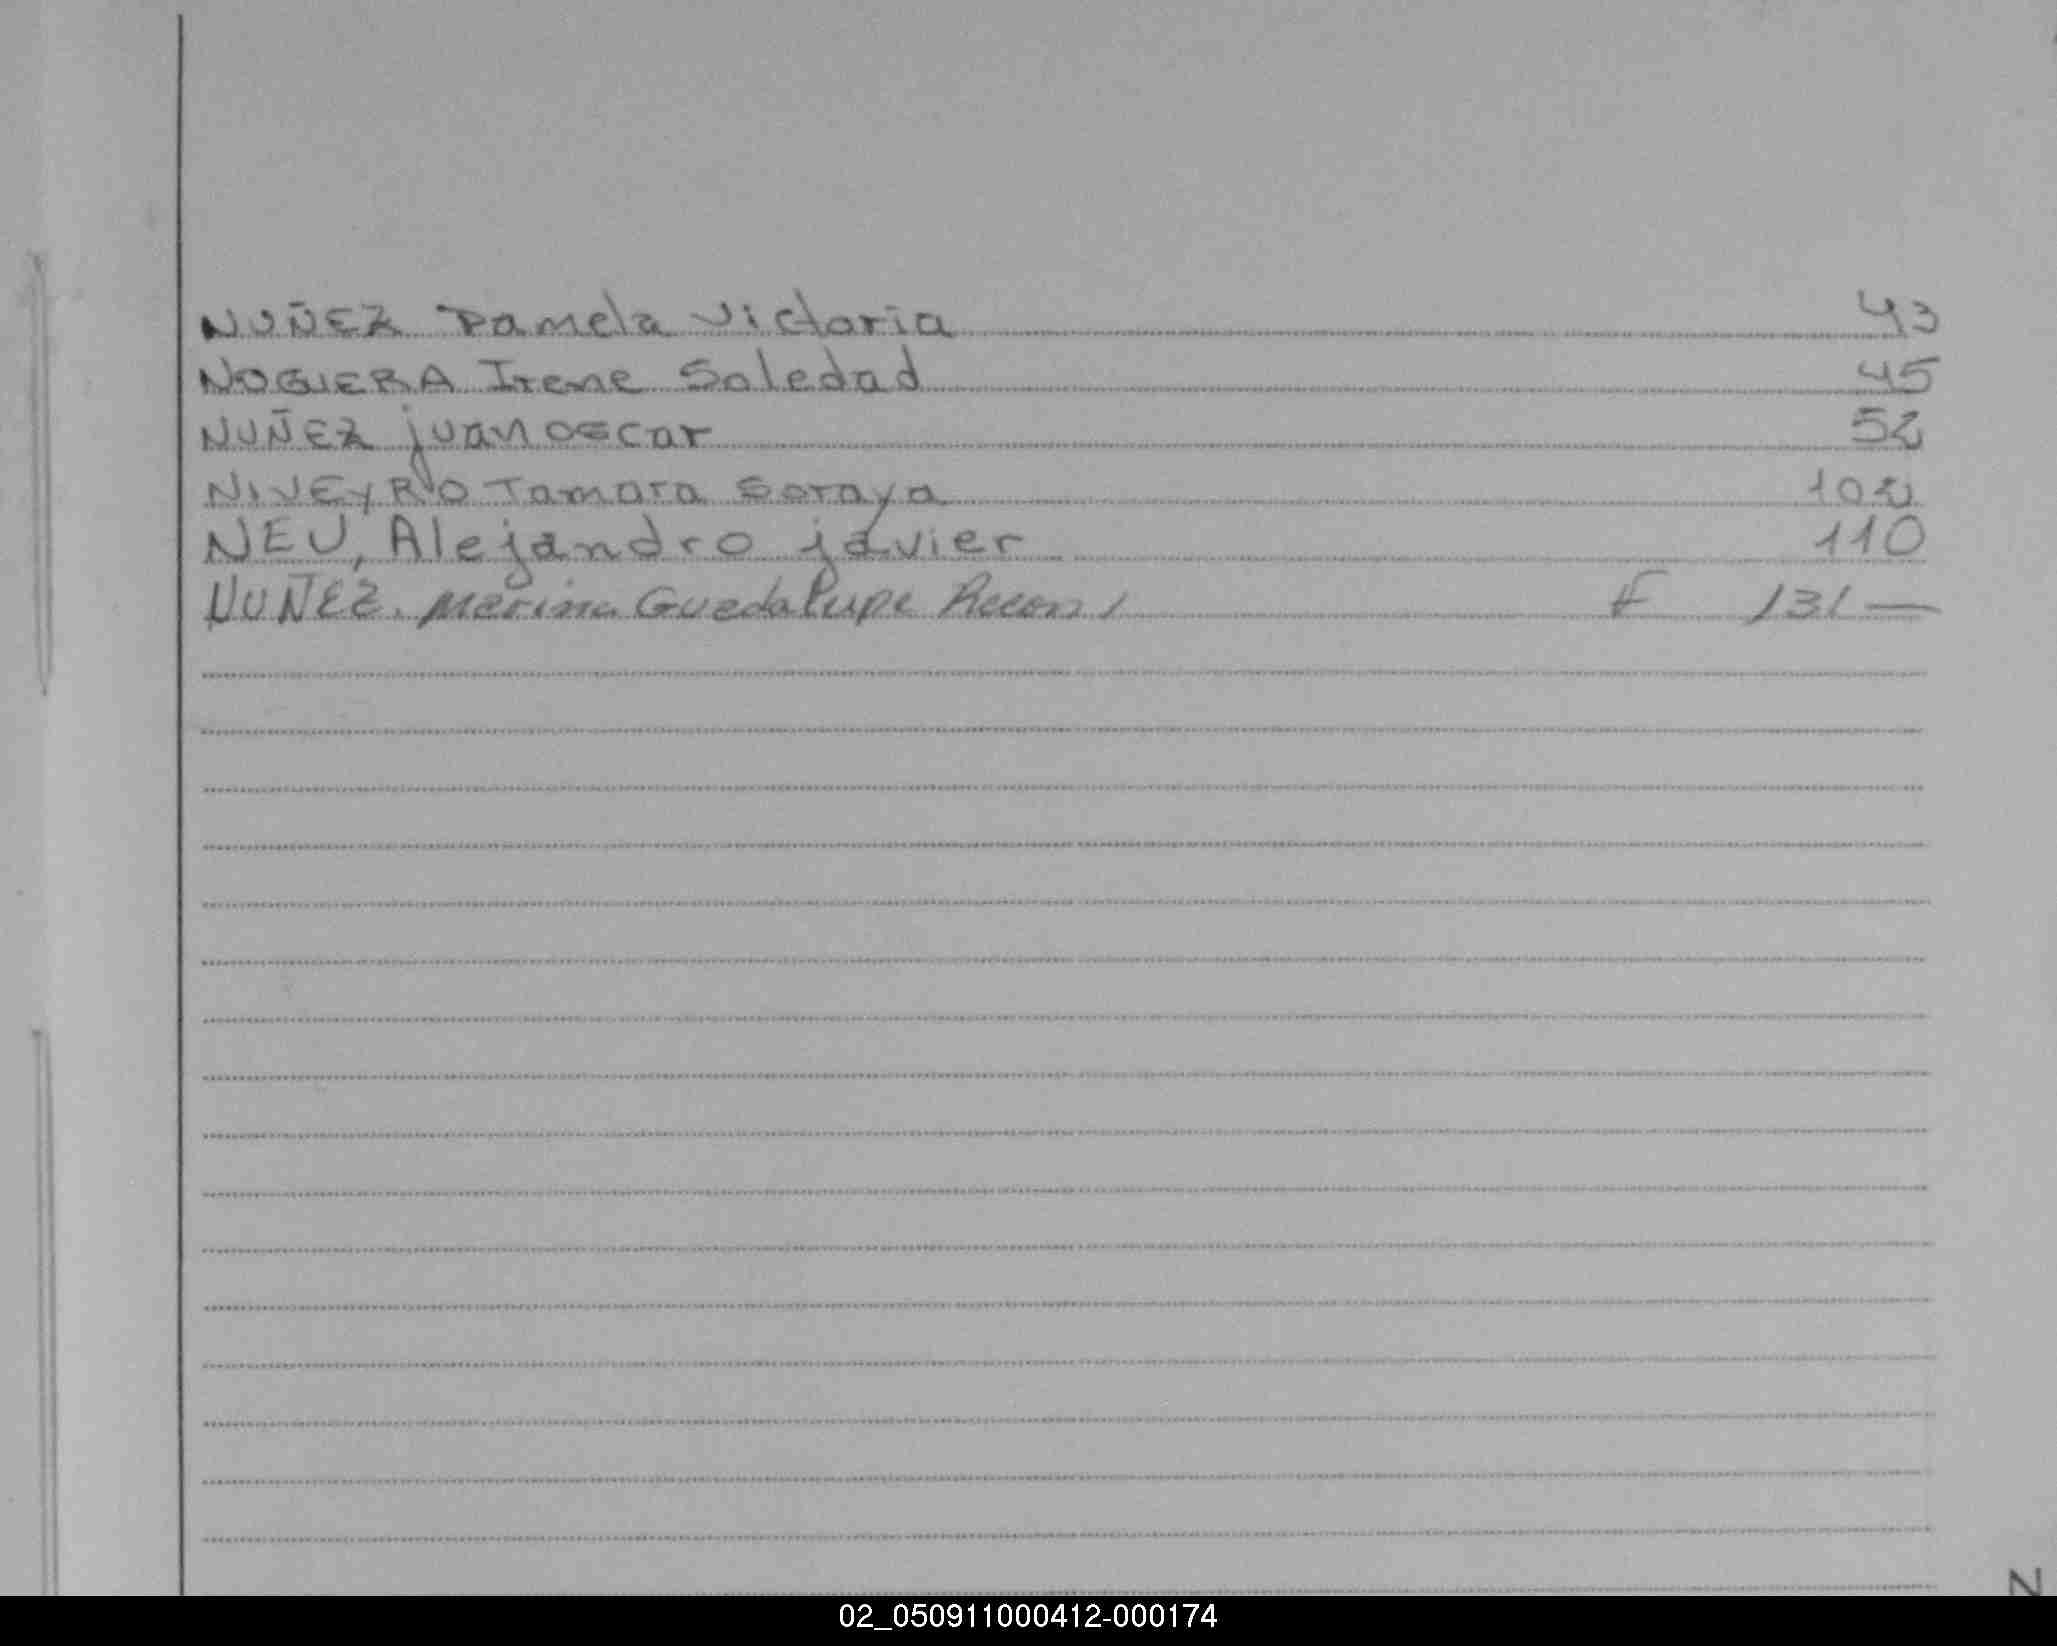 NUÑEZ Pamela Victoria 43
NOGUERA Irene Soledad 45
NUÑEZ juan oscar 52
NIVEYRO Tamara Soraya 102
NEU, Alejandro javier 110
NUÑEZ. Marina Guadalupe Recon. F 131 —
N
02_050911000412-000174